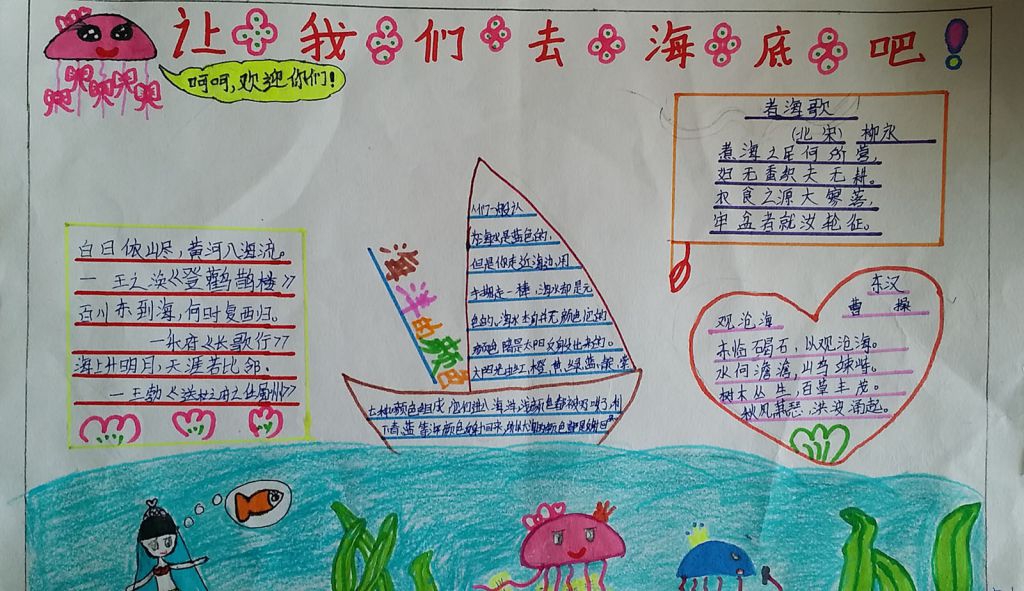 让我们去海底吧!
呵呵,欢迎你们!
煮海歌
(北宋) 柳永
煮海之民何所营,
妇无蚕织夫无耕。
衣食之源太寥落,
牢盆煮就汝轮征。
白日依山尽,黄河入海流。
—王之涣《登鹳鹊楼》
百川东到海,何时复西归。
—乐府《长歌行》
海上升明月,天涯若比邻.
—王勃《送杜之任蜀州》
海洋的颜色
人们一般认
为海水是蓝色的,
但是你走近海边,用
手掬起一捧,海水却是无
色的。海水本身并无颜色,它的
颜色是太阳
太阳光由红、橙、黄、绿、蓝、紫
七种颜色组成
东汉
曹操
观沧海
东临碣石,以观沧海。
水何澹澹,山岛竦峙。
树木丛生,百草丰茂。
秋风萧瑟,洪波涌起。